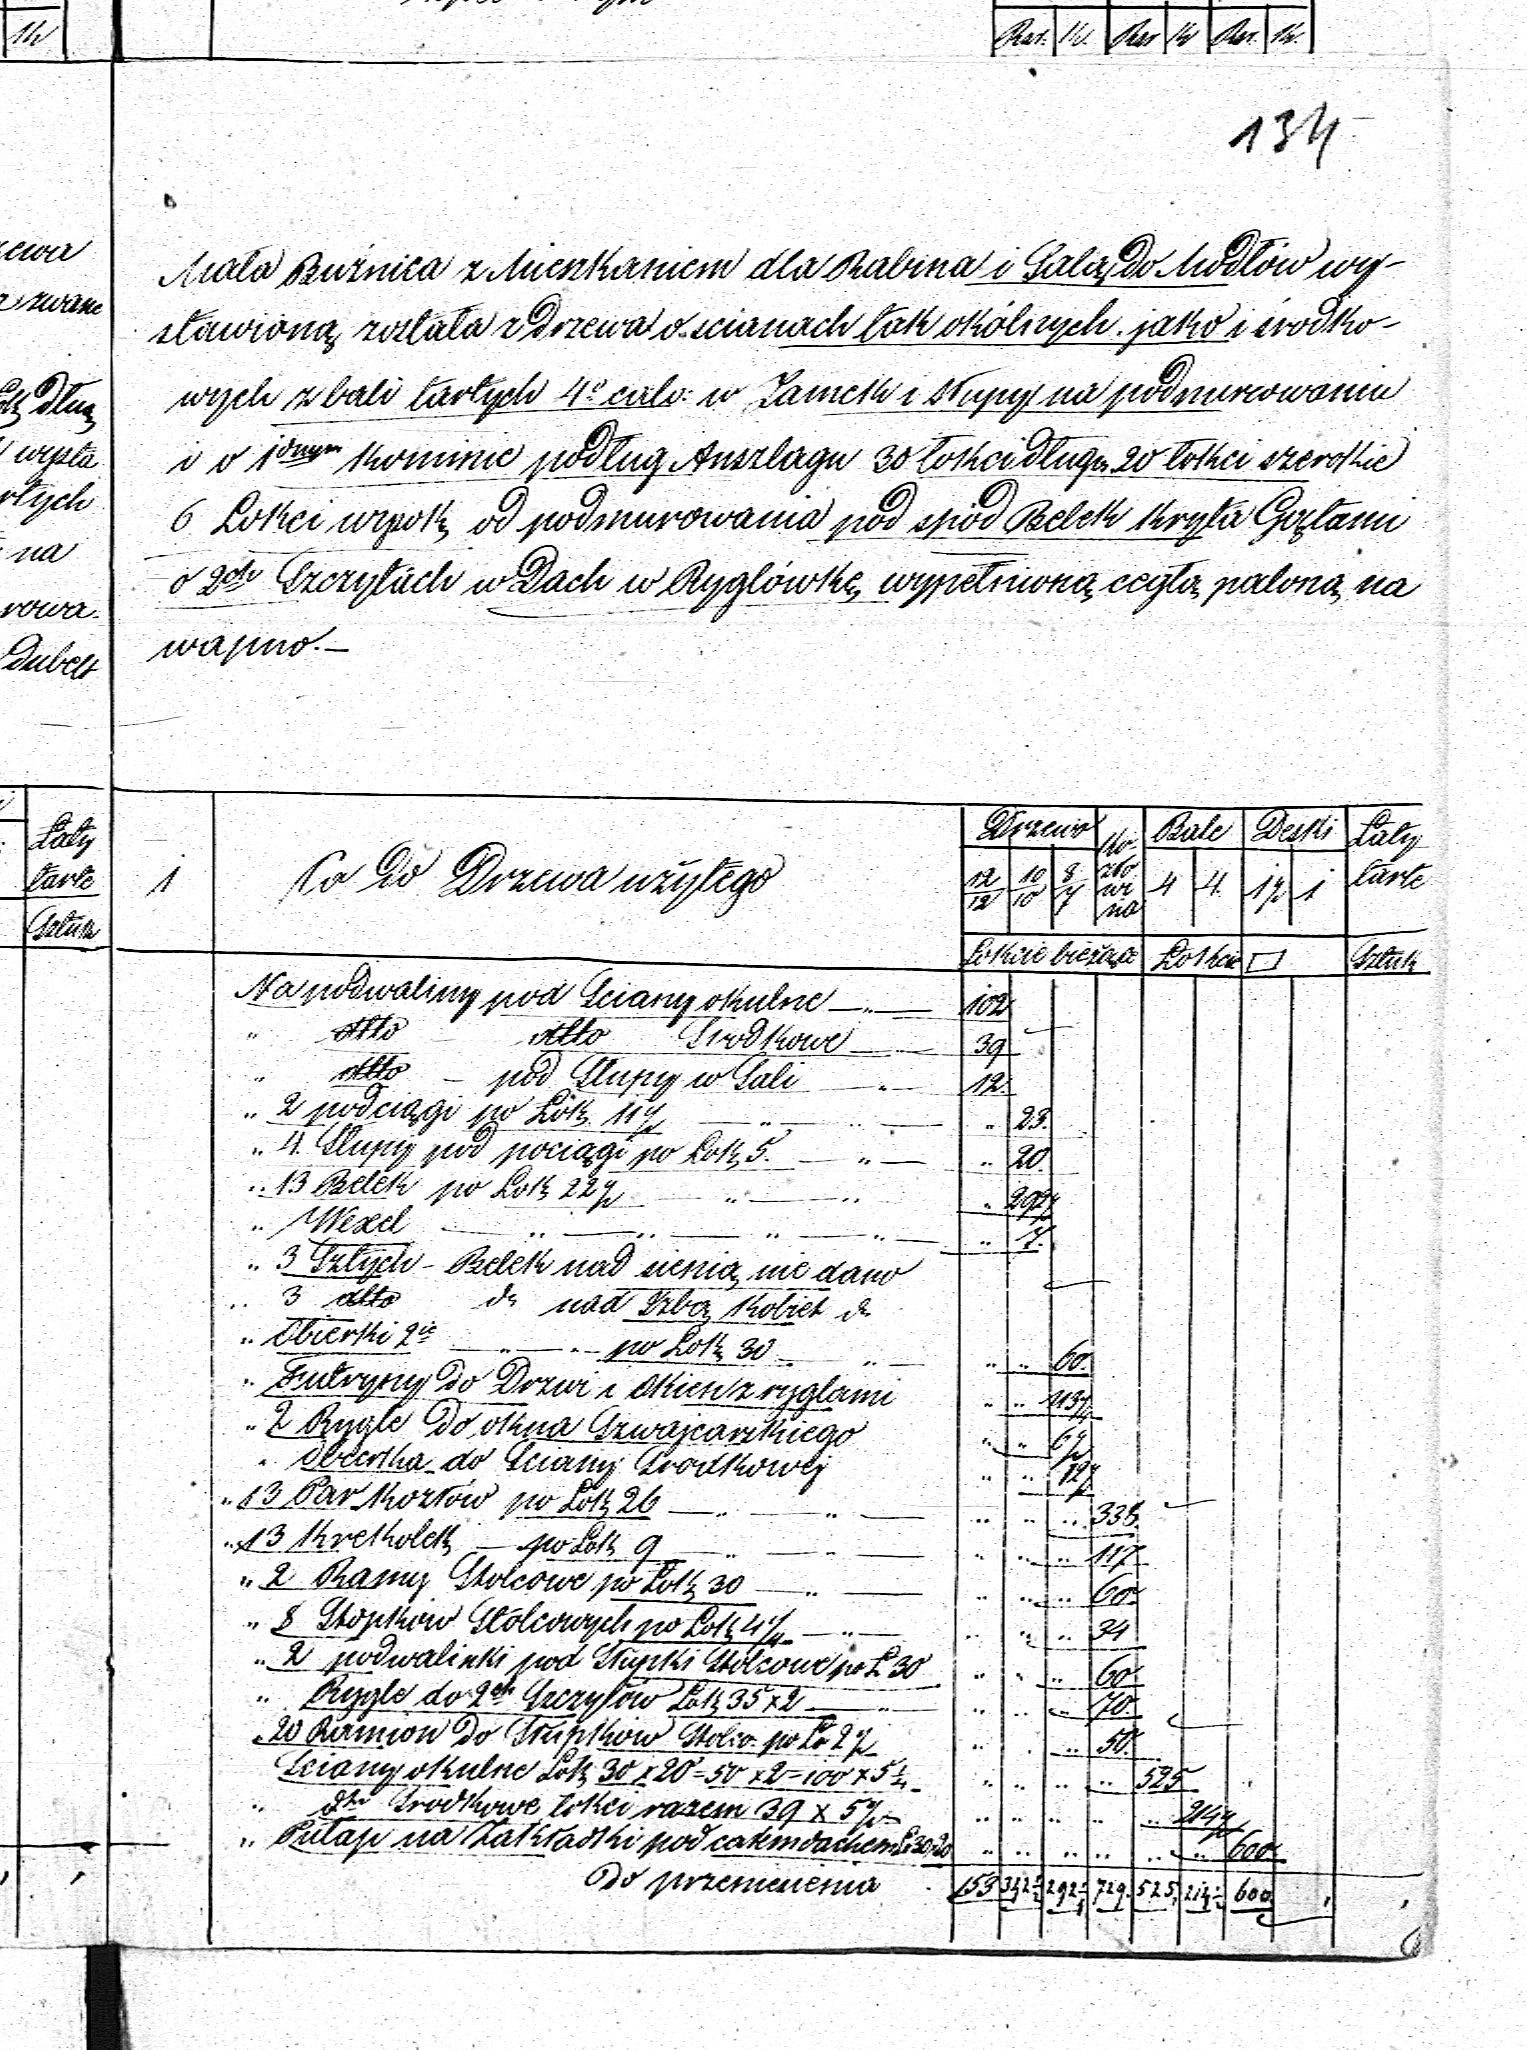 Rsr. K. Rsr K Rsr. K.
K
134
Mała Buźnica z Mieszkaniem dla Rabina i Salą do Modłów wy-
stawioną została z Drzewa o scianach tak okólnych jako i środko-
wych z bali tartych 4o calo: w Zamek i słupy na podmurowaniu
i o 1dnym kominie podług Anszlagu 30 łokci długa 20 łokci szerokie
6 Łokci wysok, od podmurowania pod spód Belek kryta Gętami
o 2ch Szczytach w Dach w Ryglówkę wypełnioną cegłą paloną na
wapno.—
zewa
zwane
długą
wysta
rtych
na
rowa-
Dubelt
Łaty
tarte
Sztuk
1 Co do Drzewa użytego
Drzewo Bale Deski Łaty
12/12 10/10 8/7 4 4 1½ 1 tarte
Łokcie bieżące Łokcie □ Sztuk
Na podwaliny pod Sciany okulne — " — 102
" dtto dtto Srodkowe — 39
" dtto — pod Słupy w Sali — " — 12.
" 2 podciągi po Łok. 11½ — " 23.
" 4 Słupy pod pociągi po Łok 5. — " — " 20.
" 13 Belek po Łok 22½ " — " " 292½
" Wexel — " — " — " — " — " 7.
" 3 Sztych-Belek nad sienią nie dano
" 3 dtto do nad Izbą Kobiet do
" Obierki 2ie — " — po Łok 30 — " — " " 60.
" Futryny do Drzwi i Okien z ryglami " " 113½
" 2 Rygle do okna Szwajcarskiego " " 6½
" Obierka do Sciany Srodkowej " " 12½
" 13 Par Kozłów po Łok 26 — " — " " " 338.
" 13 Kretholek — po Łok 9 — " — " " " 117.
" 2 Ramy Stolcowe po Łok 30 — " — " " " 60.
" 8 Stopków Stólcowych po Łok 4¼ — " — " " " 34
" 2 podwalinki pod Słupki Stolcowe po Ł 30 " " " 60.
" Rygle do 2ch Szczytów Łok 35 x 2 — " — " " " 70.
" 20 Ramion do Słupków Stolco. po Ło 2½ " " " 50.
Sciany okulne Łok 30 x 20 = 50 x 2 = 100 x 5¼ " " " " 525
" dto Srodkowe łokci razem 39 x 5½ " " " " " 214½
" Pułap na Zakładki pod całem dachem Ł 30x20 " " " " " " 600
Do przeniesienia 153 342½ 292½ 729. 525. 214½ 600